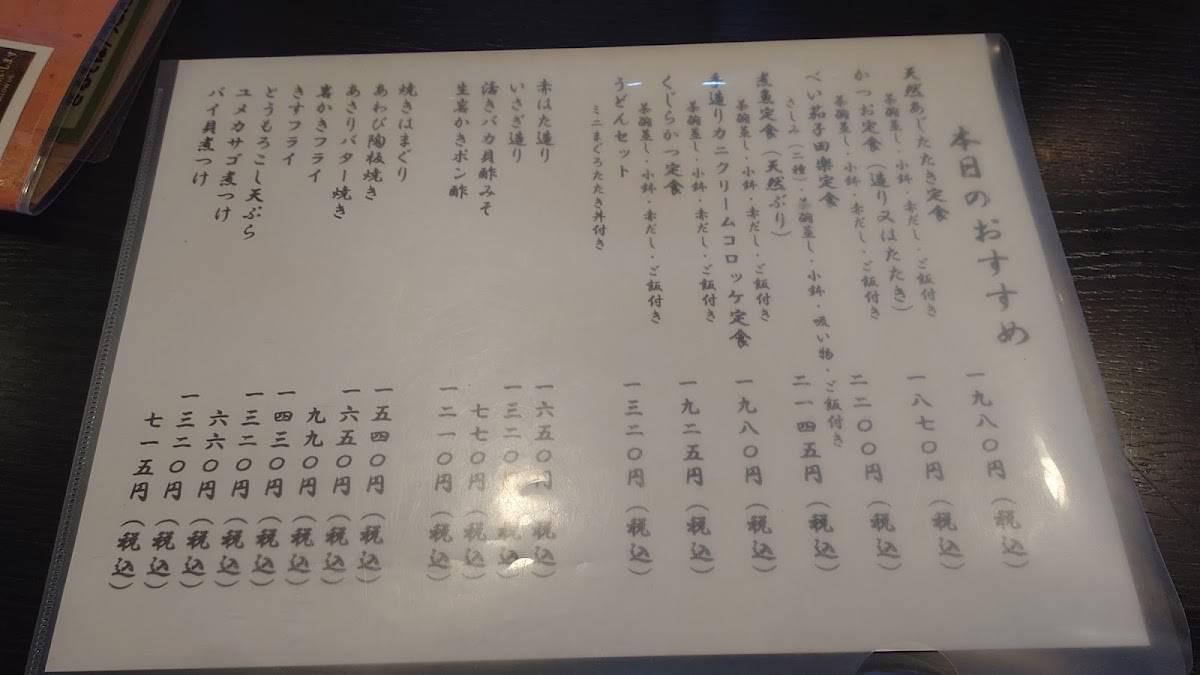 本日のおすすめ
天然あじたたき定食 一九八〇円（税込）
茶碗蒸し・小鉢・赤だし・ご飯付き
かつお定食（造り又はたたき） 一八七〇円（税込）
茶碗蒸し・小鉢・赤だし・ご飯付き
べい茄子田楽定食 二二〇〇円（税込）
さしみ（二種）・茶碗蒸し・小鉢・吸い物・ご飯付き
煮魚定食（天然ぶり） 二一四五円（税込）
茶碗蒸し・小鉢・赤だし・ご飯付き
手造りカニクリームコロッケ定食 一九八〇円（税込）
茶碗蒸し・小鉢・赤だし・ご飯付き
くじらかつ定食 一九二五円（税込）
茶碗蒸し・小鉢・赤だし・ご飯付き
うどんセット 一三二〇円（税込）
ミニまぐろたたき丼付き
赤はた造り 一六五〇円（税込）
いさぎ造り 一三二〇円（税込）
活きバカ貝酢みそ 七七〇円（税込）
生岩かきポン酢 一二一〇円（税込）
焼きはまぐり 一五四〇円（税込）
あわび陶板焼き 一六五〇円（税込）
あさりバター焼き 九九〇円（税込）
岩かきフライ 一四三〇円（税込）
きすフライ 一三二〇円（税込）
とうもろこし天ぷら 六六〇円（税込）
ユメカサゴ煮つけ 一三二〇円（税込）
バイ貝煮つけ 七一五円（税込）